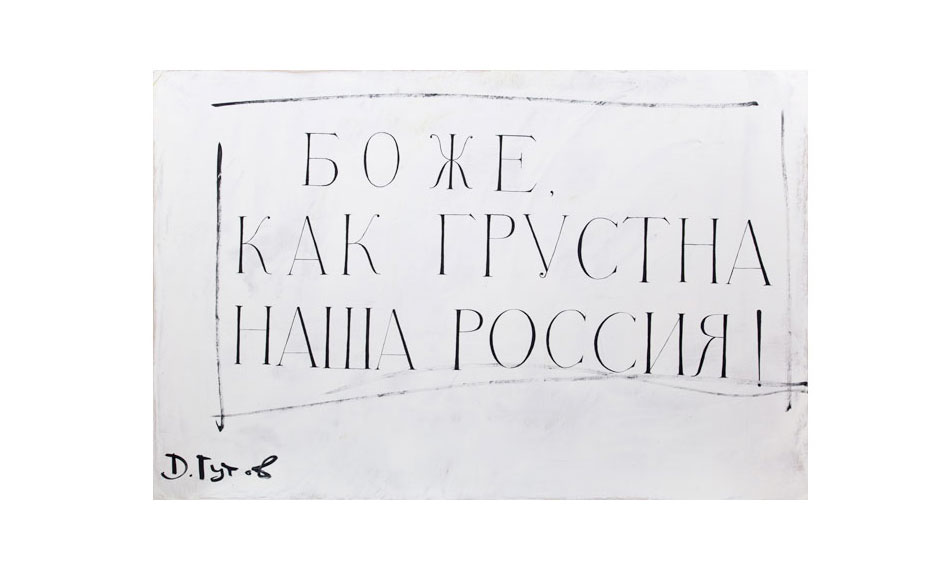 БОЖЕ,
КАК ГРУСТНА
НАША РОССИЯ!
Д. Гутов